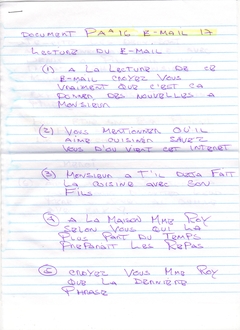 DOCUMENT PAA 16 E-MAIL 17
LECTURE DU E-MAIL
(1) A LA LECTURE DE CE
E-MAIL CROYEZ VOUS
VRAIMENT QUE C'EST CA
DONNER DES NOUVELLES A
MONSIEUR
(2) VOUS MENTIONNER QU'IL
AIME CUISINER SAVEZ
VOUS D'OU VIENT CET INTERET
(3) MONSIEUR A T'IL DEJA FAIT
LA CUISINE AVEC SON
FILS
(4) A LA MAISON MME ROY
SELON VOUS QUI LA
PLUS PART DU TEMPS
PREPARAIT LES REPAS
(5) CROYEZ VOUS MME ROY
QUE LA DERNIERE
PHRASE